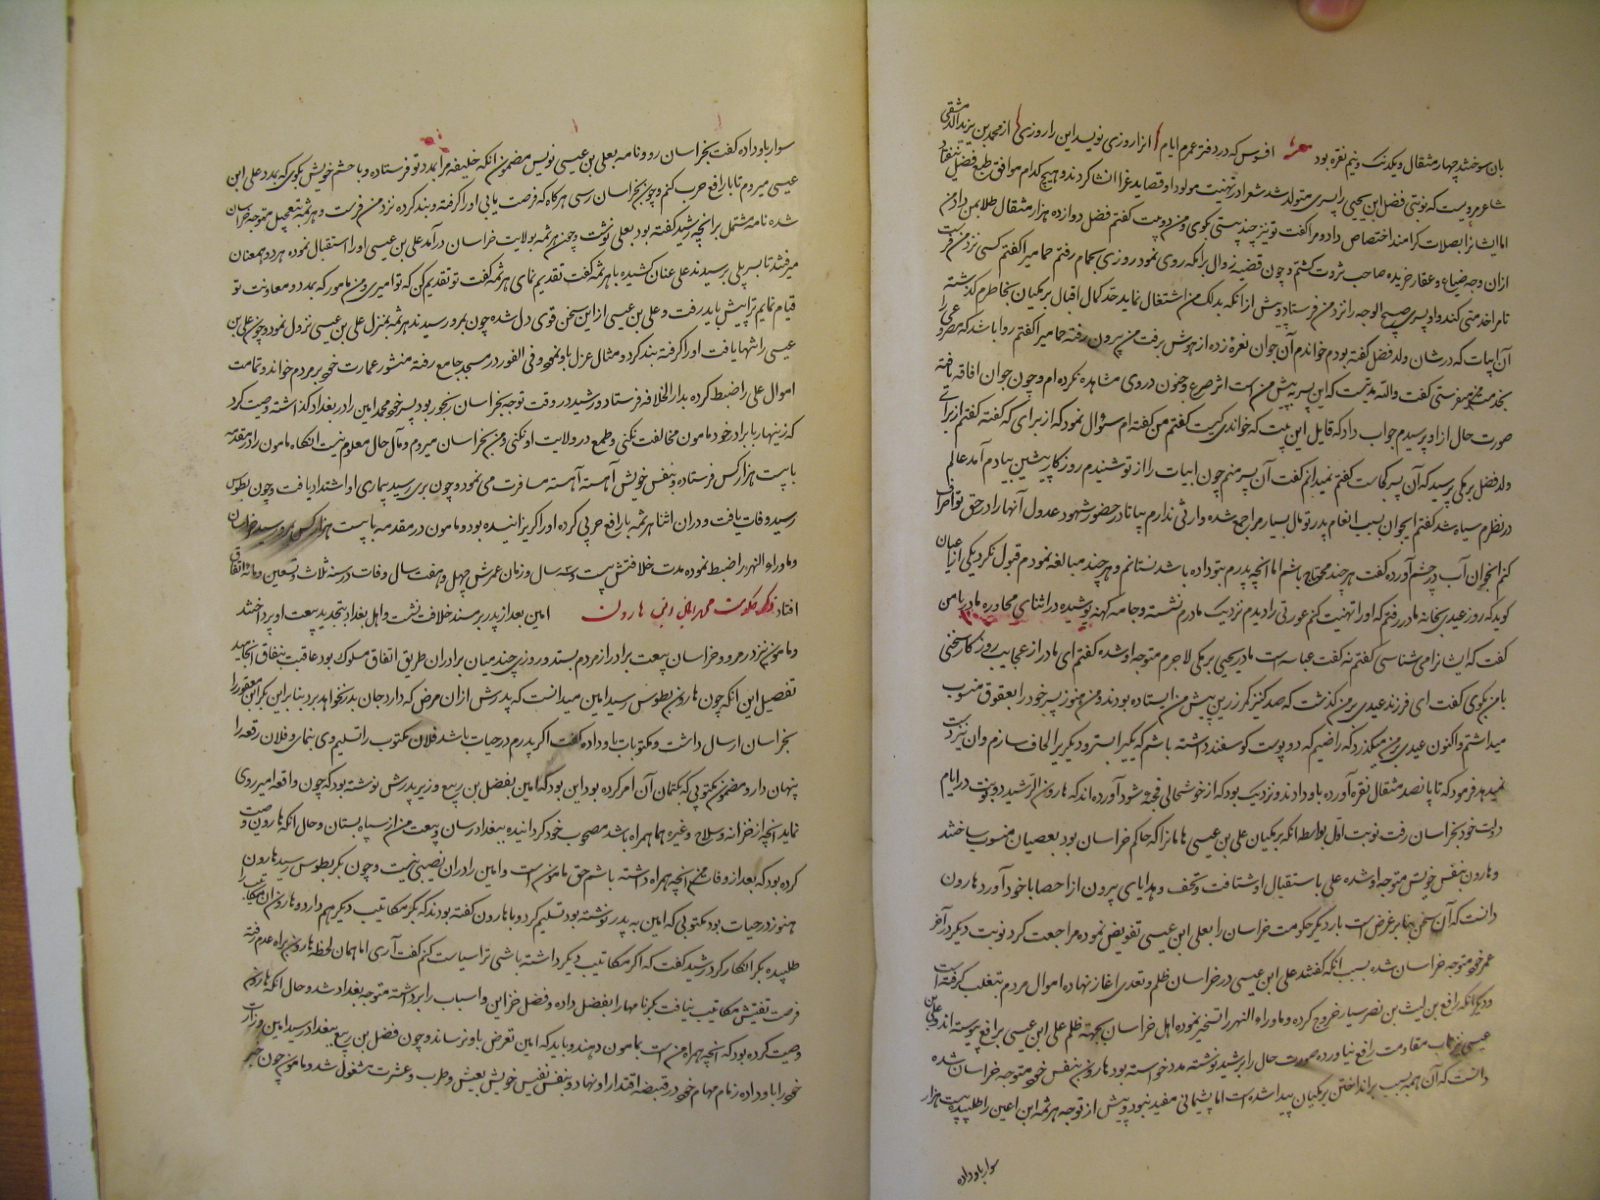 بان سوختند چهار مثقال و یکدنک و نیم نقره بود شعر افسوس که در دفتر عمرم ایام انرا روزی نویسد این را روزی از محمد بن یزید الدمشقی
شاعر مرویست که نوبتی فضل ابن یحیی را پسری متولد شد شعرا در تهنیت مولود او قصاید غرا انشا کردند و هیچ کدام موافق طبع فضل
اما ایشانرا بصلات کرامند اختصاص داد و مرا کفت تو نیز چند بیتی بکوی و من دو بیت کفتم فضل دوازده هزار مثقال طلا بمن داد و من
ازان وجه ضیاع و عقار خریده صاحب ثروت کشتم و چون قضیه زوال برامکه روی نمود روزی بحمام رفتم حمامی را کفتم کسی نزد من فرست
تا مرا خدمتی کند و او پسری صبیح الوجه را نزد من فرستاد و پیش از انکه بدلک من اشتغال نماید حد کمال اقبال برمکیان بخاطرم کذشته
آن ابیات که در شان ولد فضل کفته بودم خواندم آن جوان نعره زده از هوش برفت من بیرون رفته حمامی را کفتم روا باشد که مصروعی را
بخدمت من میفرستی کفت والله مدتیست که این پسر پیش من است اثر صرع و جنون در وی مشاهده نکرده ام و چون جوان افاقه یافته
صورت حال از او پرسیدم جواب داد که قایل این بیت که خواندی کیست کفتم من کفته ام سؤال نمود که از برای که کفته کفتم از برای
ولد فضل برمکی پرسید که آن پسر کجاست کفتم نمیدانم کفت آن پسر منم چون ابیات را از تو شنیدم روزکار پیشین بیادم آمد عالم
در نظرم سیاه شد کفتم ایجوان بسبب انعام پدر تو مال بسیار مرا جمع شده وارثی ندارم بیا تا در حضور شهود عدول آنها را در حق تو اقرار
کنم انجوان آب در چشم آورده کفت هر چند محتاج باشم اما انچه پدرم بتو داده باشد نستانم و هر چند مبالغه نمودم قبول نکرد یکی از اعیان
کوید که روز عیدی بخانه مادر رفتم که اورا تهنیت کنم عورتی را دیدم نزدیک مادرم نشسته و جامه کهنه پوشیده در اثنای محاوره مادر با من
کفت که ایشانرا می شناسی کفتم نه کفت عباسه است مادر یحیی برمکی لاجرم متوجه او شده کفتم ای مادر از عجایب روزکار سخنی
با من بکوی کفت ای فرزند عیدی بر من کذشت که صد کنیز کمر زرین پیش من ایستاده بودند و من هنوز پسر خود را بعقوق منسوب
میداشتم و اکنون عیدی بر من میکذرد که راضیم که دو پوست کوسفند داشته باشم که یکی را بستر و دیکری را لحاف سازم و ان نیز دست
نمیدهد فرمود که تا پانصد مثقال نقره آورده باو دادند و نزدیک بود که از خوشحالی فجئه شود آورده اند که هارون الرشید دو نوبت در ایام
دولت خود بخراسان رفت نوبت اول بواسطه انکه برمکیان علی بن عیسی هامان را که حاکم خراسان بود بعصیان منسوب ساختند
و هارون بنفس خویش متوجه او شده علی باستقبال او شتافت و تحف و هدایای بیرون از احصا با خود آورد هارون
دانست که آن سخن بنابر غرض است بار دیکر حکومت خراسان را بعلی ابن عیسی تفویض نموده مراجعت کرد نوبت دیکر در آخر
عمر خود متوجه خراسان شده بسبب انکه کفتند علی ابن عیسی در خراسان ظلم و تعدی اغاز نهاده اموال مردم بتغلب کرفته است
و دیکر انکه رافع بن لیث بن نصر سیار خروج کرده و ماوراء النهر را تسخیر نموده اهل خراسان بجهة ظلم علی ابن عیسی برافع پیوسته اند و علی بن
عیسی تاب مقاومت رافع نیاورده صورت حال را برشید نوشته مدد خواسته بود هارون بنفس خود متوجه خراسان شده
دانست که آن همه بسبب برانداختن برمکیان پیدا شده است اما پشیمانی مفید نبود و پیش از توجه هرثمه ابن اعین را طلبیده بیست هزار
سوار باو داده
سوار باو داده کفت بخراسان رو و نامه بعلی بن عیسی نویس مضمون انکه خلیفه مرا بمدد تو فرستاده و با حشم خویش بکوی که بمدد علی ابن
عیسی میروم تا با رافع حرب کنم و چون بخراسان رسی هرکاه که فرصت یابی اورا کرفته و بند کرده نزد من فرست و هرثمه بتعجیل متوجه خراسان
شده نامه مشتمل بر انچه رشید کفته بود بعلی نوشت و چون هرثمه بولایت خراسان درآمد علی بن عیسی اورا استقبال نموده هر دو همعنان
میرفتند تا بسر پلی رسیدند علی عنان کشیده با هرثمه کفت تقدیم نمای هرثمه کفت تو تقدیم کن که تو امیری و من مامور که بمدد و معاونت تو
قیام نمایم ترا پیش باید رفت و علی بن عیسی از این سخن قوی دل شده چون بمرو رسیدند هرثمه بمنزل علی بن عیسی نزول نمود و چون علی بن
عیسی را تنها یافت اورا کرفته بند کرد و مثال عزل باو نمود و فی الفور در مسجد جامع رفته منشور عمارت خود بر مردم خواند و تمامت
اموال علی را ضبط کرده بدار الخلافه فرستاد و رشید در وقت توجه بخراسان رنجور بود پسر خود محمد امین را در بغداد کذاشته وصیت کرد
که زینهار با برادر خود مامون مخالفت نکنی و طمع در ولایت او نکنی و من بخراسان میروم و مآل حال معلوم نیست انکاه مامون را در مقدمه
با بیست هزار کس فرستاده و بنفس خویش آهسته آهسته مسافرت می نمود و چون بری رسید بیماری او اشتداد یافت و چون بطوس
رسید وفات یافت و دران اثنا هرثمه با رافع حربی کرده اورا کریزانیده بود و مامون در مقدمه با بیست هزار کس بمرو رسید خراسان
و ماوراء النهر را ضبط نموده مدت خلافتش بیست و سه سال و زمان عمرش چهل و هفت سال وفات در سنه ثلاث و تسعین و مائه اتفاق
افتاد ذکر حکومت محمد امین ابن هارون امین بعد از پدر بر مسند خلافت نشست و اهل بغداد بتجدید بیعت او پرداختند
و مامون نیز در مرو و خراسان بیعت برادر از مردم بستد و روزی چند میان برادران طریق اتفاق مسلوک بود عاقبت بنفاق انجامید
تفصیل این انکه چون هارون بطوس رسید امین میدانست که پدرش ازان مرض که دارد جان بدر نخواهد برد بنابر این بکر ابن معتمر را
بخراسان ارسال داشت و مکتوبات باو داده کفت اکر پدرم در حیات باشد فلان مکتوب را تسلیم وی نمای و فلان رقعه را
پنهان دار و مضمون مکتوبی که بکتمان آن امر کرده بود این بود که امین بفضل بن ربیع وزیر پدرش نوشته بود که چون واقعه امیر روی
نماید انچه از خزانه و سلاح و غیره هما همراه باشد مصحوب خود کردانیده ببغداد رسان و بیعت من از سپاه بستان و حال انکه هارون وصیت
کرده بود که بعد از وفات من انچه همراه داشته باشم حق مامونست و امین را دران نصیبی نیست و چون بکر بطوس رسید هارون
هنوز در حیات بود مکتوبی که امین به پدر نوشته بود تسلیم کرد و با هارون کفته بودند که بکر مکاتیب دیکر هم دارد و هارون ان مکاتیب را
طلبیده بکر انکار کرد رشید کفت که اکر مکاتیب دیکر داشته باشی ترا سیاست کنم کفت آری اما همان لحظه هارون براه عدم رفته
فرصت تفتیش مکاتیب نیافت بکر نامها را بفضل داده و فضل خزاین و اسباب را برداشته متوجه بغداد شد و حال انکه هارون
وصیت کرده بود که انچه همراه من است بمامون دهند و باید که امین تعرض باو نرساند و چون فضل بن ربیع ببغداد رسید امین وزارت
خود را باو داده زمام مهام خود در قبضه اقتدار او نهاد و بنفس نفیس خویش بعیش و طرب و عشرت مشغول شد و مامون چون خبر